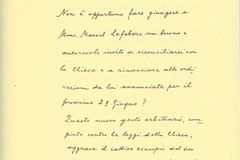 Non è opportuno fare giungere a
Mons. Marcel Lefebvre un buono e
autorevole invito a riconciliarsi con
la Chiesa e a rinunciare alle ordi
nazioni da lui annunciate per il
prossimo 29 Giugno?
Questo nuovo gesto arbitrario, com
piuto contro le leggi della Chiesa,
aggrava il cattivo esempio del suo